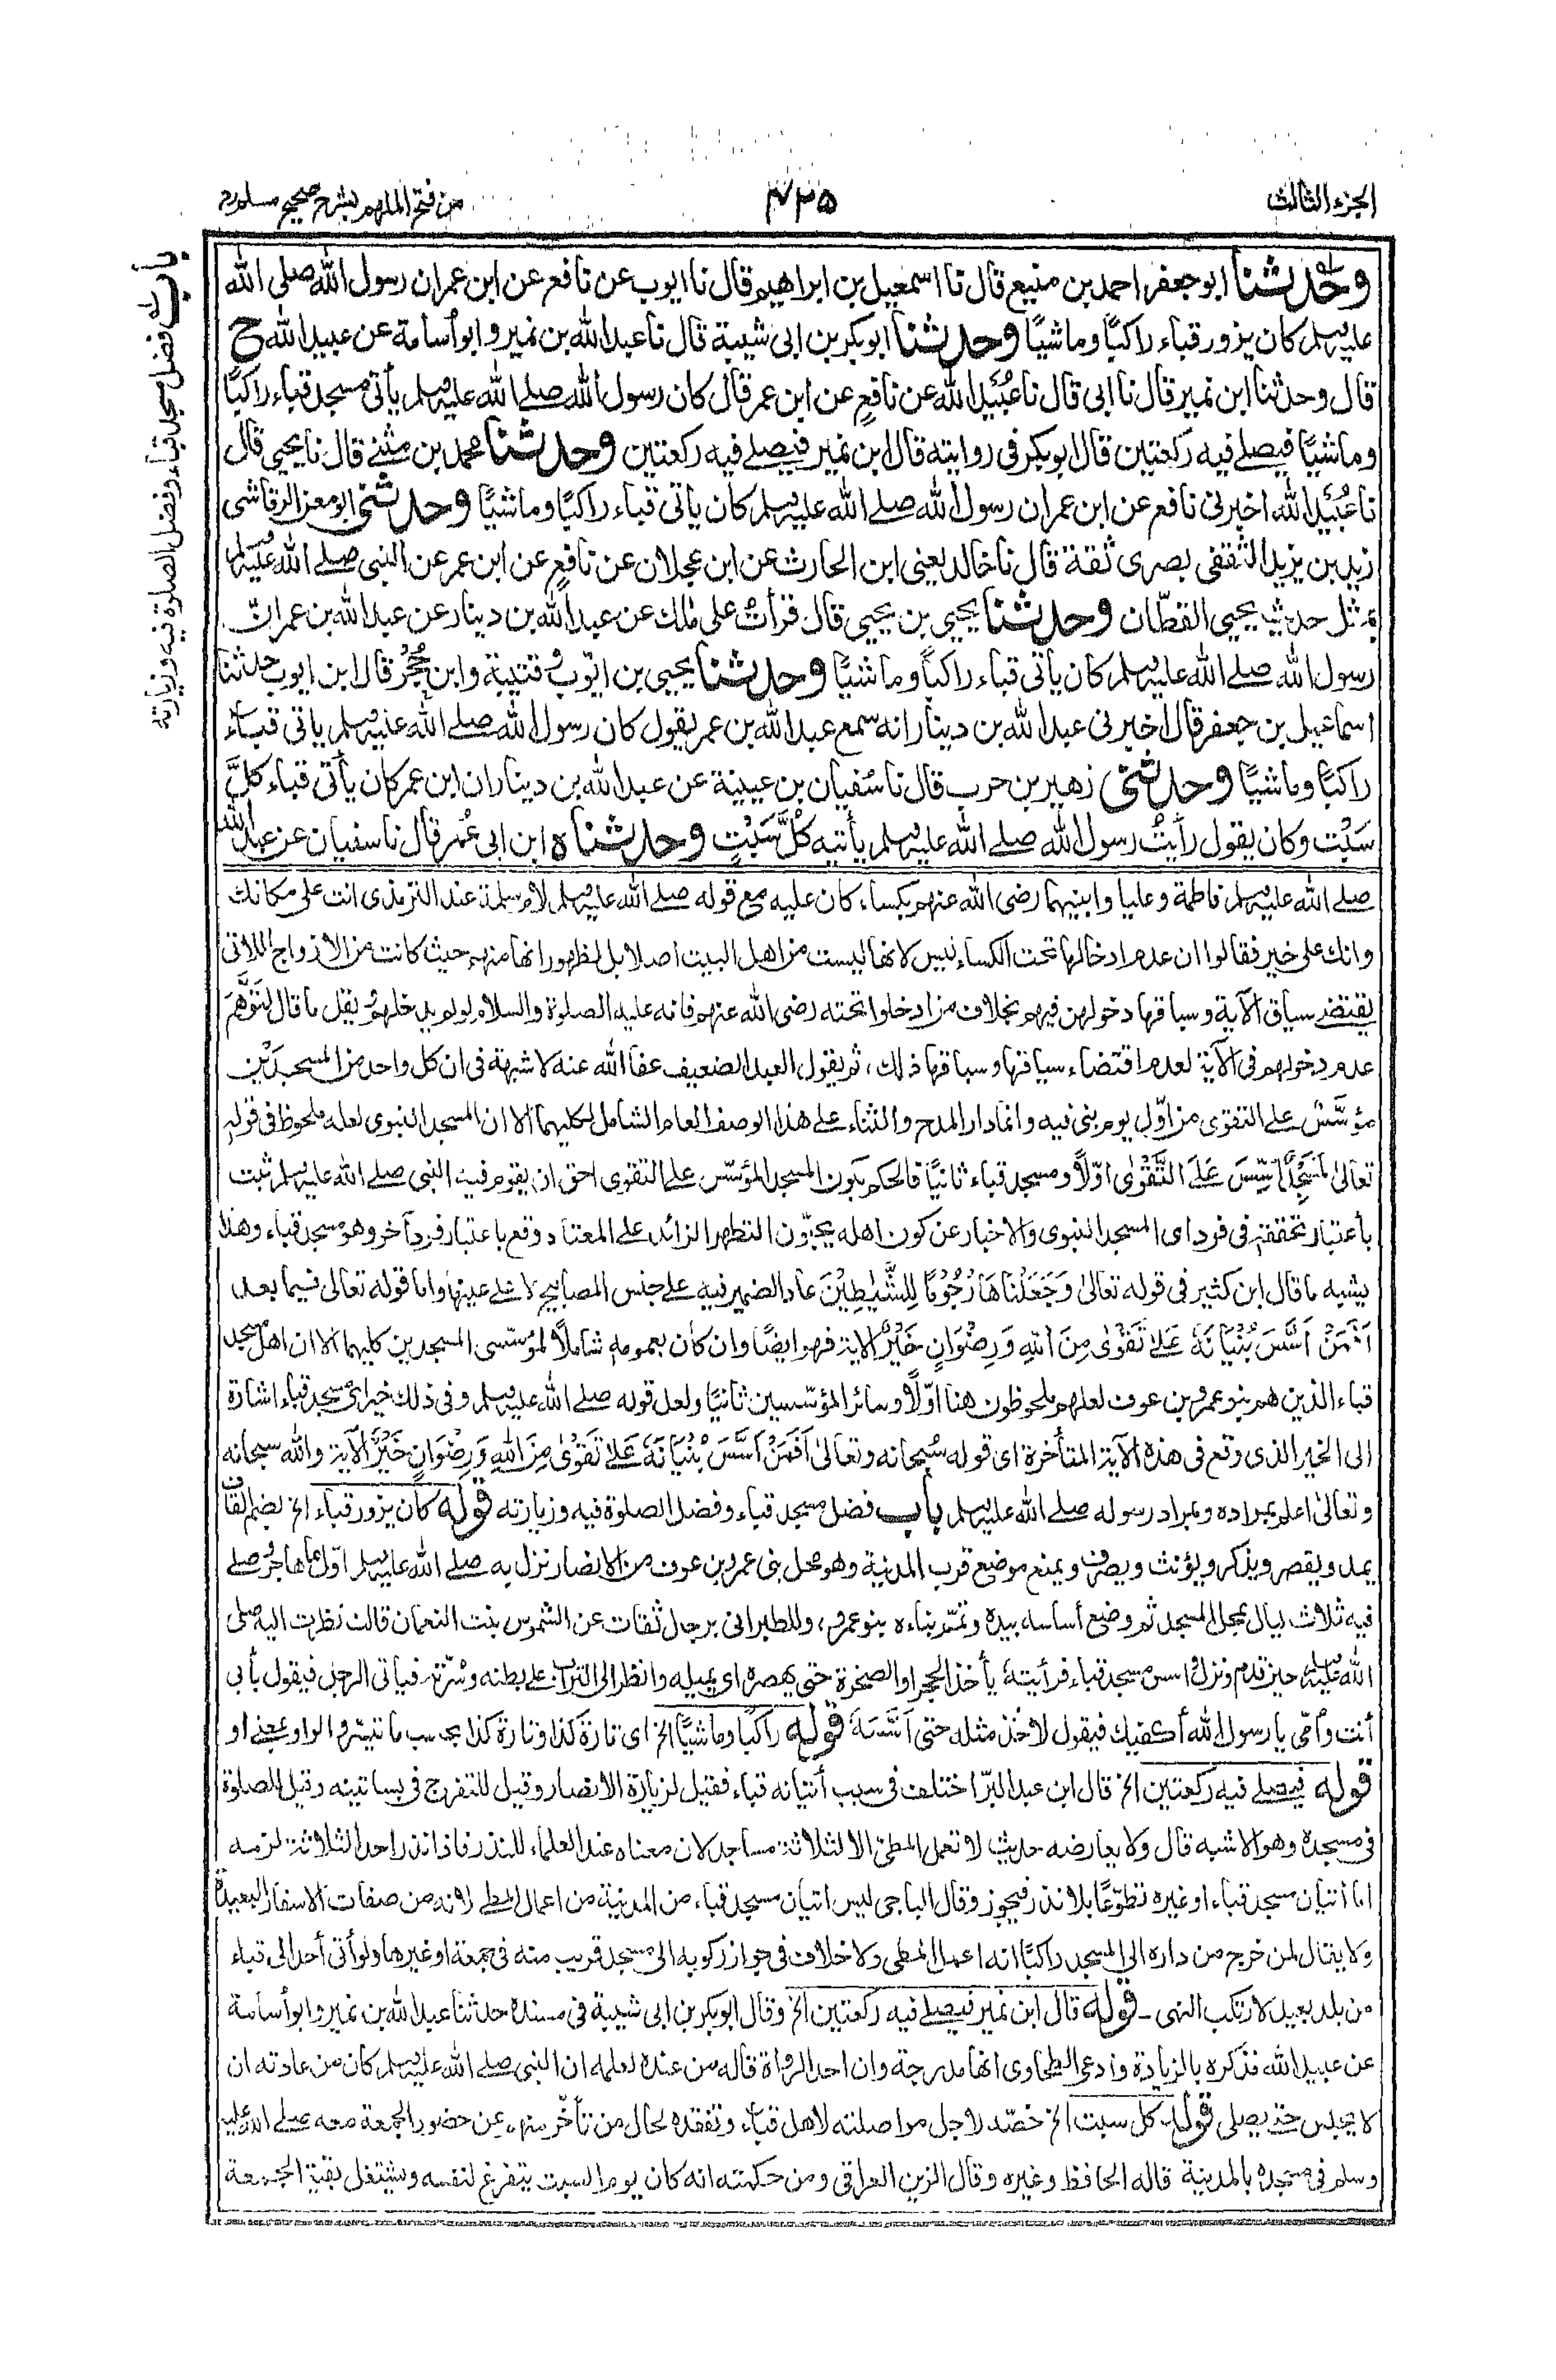 الجزء الثالث
۴۲۵
من فتح الملهم بشرح صحيح مسلم رح
باب فضل مسجد قباء وفضل الصلوة فيه وزيارته
وحدثنا ابو جعفر احمد بن منيع قال نا اسمعيل بن ابراهيم قال نا ايوب عن نافع عن ابن عمر ان رسول الله صلى الله
عليه وسلم كان يزور قباء راكبًا وماشيًا وحدثنا ابوبكر بن ابى شيبة قال نا عبد الله بن نمير وابو أسامة عن عبيد الله ح
قال وحدثنا ابن نمير قال نا ابى قال نا عُبَيد الله عن نافعٍ عن ابن عمر قال كان رسول الله صلے الله عليه وسلم يأتى مسجد قباء راكبًا
وماشيًا فيصلے فيه ركعتين قال ابوبكر فى روايته قال ابن نمير فيصلے فيه ركعتين وحدثنا محمد بن مثنے قال نا يحيى قال
نا عُبَيد الله اخبرنى نافع عن ابن عمر ان رسول الله صلے الله عليه وسلم كان ياتى قباء راكبًا وماشيًا وحدثنى ابو معن الرقاشى
زيد بن يزيد الثقفى بصرى ثقة قال نا خالد يعنى ابن الحارث عن ابن عجلان عن نافعٍ عن ابن عمر عن النبى صلے الله عليه وسلم
بمثل حديث يحيى القطّان وحدثنا يحيى بن يحيى قال قرأتُ على مٰلك عن عبد الله بن دينار عن عبد الله بن عمر انّ
رسول الله صلے الله عليه وسلم كان يأتى قباء راكبًا وماشيًا وحدثنا يحيى بن ايّوب وقتيبة وابن حُجْر قال ابن ايوب حدثنا
اسماعيل بن جعفر قال اخبرنى عبد الله بن دينار انه سمع عبد الله بن عمر يقول كان رسول الله صلے الله عليه وسلم ياتى قباءً
راكبًا وماشيًا وحدثنى زهير بن حرب قال نا سُفيان بن عيينة عن عبد الله بن دينار ان ابن عمر كان يأتى قباء كلَّ
سَبْت وكان يقول رأيتُ رسول الله صلے الله عليه وسلم يأتيه كُلَّ سَبْتٍ وحدثناه ابن ابى عُمر قال نا سفيان عن عبد الله
صلے الله عليه وسلم فاطمة وعليا وابنيهما رضى الله عنهم بكساء كان عليه مع قوله صلے الله عليه وسلم لأم سلمة عند الترمذى انت على مكانك
وانك على خير فقالوا ان عدم ادخالها تحت الكساء ليس لانها ليست من اهل البيت اصلا بل لظهور انها منهم حيث كانت من الازواج اللاتى
يقتضے سياق الآية وسباقها دخولهن فيهم بخلاف من ادخلوا تحته رضى الله عنهم فانه عليه الصلوة والسلام لو لم يدخلهم ويقل ما قال لتوهّم
عدم دخولهم فى الآية لعدم اقتضاء سياقها وسباقها ذلك، ثم يقول العبد الضعيف عفا الله عنه لا شبهة فى ان كل واحد من المسجدين
مؤسَّسٌ على التقوى من اوّل يوم بنى فيه وانما دار المدح والثناء على هذا الوصف العام الشامل لكليهما الا ان المسجد النبوى لعله ملحوظ فى قوله
تعالىٰ لَمَسْجِدٌ اُسِّسَ عَلَے التَّقْوٰى اوّلاً ومسجد قباء ثانيًا فالحكم بكون المسجد المؤسّس على التقوى احق ان يقوم فيه النبى صلے الله عليه وسلم ثبت
بأعتبار تحققه فى فرد اى المسجد النبوى والاخبار عن كون اهله يحبّون التطهر الزائد على المعتاد وقع باعتبار فرد آخر وهو مسجد قباء وهذا
يشبه ما قال ابن كثير فى قوله تعالىٰ وَجَعَلْنَاهَا رُجُوْمًا لِلشَّيٰطِيْنَ عاد الضمير فيه على جنس المصابيح لا على عينها واما قوله تعالى فيما بعد
اَفَمَنْ اَسَّسَ بُنْيَانَهُ عَلٰے تَقْوٰى مِنَ اللهِ وَرِضْوَانٍ خَيْرٌ الاية فهو ايضًا وان كان بعمومه شاملاً لمؤسّسى المسجدين كليهما الا ان اهل مسجد
قباء الذين هم بنو عمرو بن عوف لعلهم ملحوظون هنا اوّلاً وسائر المؤسّسين ثانيًا ولعل قوله صلے الله عليه وسلم وفى ذلك خير اى مسجد قباء اشارة
الى الخير الذى وقع فى هذه الآية المتأخرة اى قوله سُبحانه وتعالىٰ اَفَمَنْ اَسَّسَ بُنْيَانَهُ عَلٰے تَقْوٰى مِنَ اللهِ وَرِضْوَانٍ خَيْرٌ الآية والله سبحانه
وتعالىٰ اعلم بمراده وبمراد رسوله صلے الله عليه وسلم باب فضل مسجد قباء وفضل الصلوة فيه وزيارته قوله كان يزور قباء الخ بضم القاف
يمد ويقصر ويذكر ويؤنث ويصرف ويمنع موضع قرب المدينة وهو محل بنى عمرو بن عوف من الانصار نزل به صلے الله عليه وسلم اوّل ما هاجر وصلے
فيه ثلاث ليال بمحل المسجد ثم وضع أساسه بيده وتمّم بناءه بنو عمرو، وللطبرانى برجال ثقات عن الشموس بنت النعمان قالت نظرت اليه صلى
الله عليه وسلم حين قدم ونزل واسس مسجد قباء فرأيته يأخذ الحجر او الصخرة حتى يهصره اى يميله وانظر الى التراب على بطنه وسُرّته فيأتى الرجل فيقول بأبى
أنت وأمّى يا رسول الله أكفيك فيقول لا خُذ مثله حتى اَسَّسَهٗ قوله راكبًا وماشيًا الخ اى تارة كذا وتارة كذا بحسب ما تيسّر والواو بمعنے او
قوله فيصلے فيه ركعتين الخ قال ابن عبد البرّ اختلف فى سبب أتيانه قباء فقيل لزيارة الانصار وقيل للتفرج فى بساتينه وقيل للصلوة
فى مسجده وهو الاشبه قال ولا يعارضه حديث لا تعمل المطىّ الا لثلاثة مساجد لان معناه عند العلماء للنذر فاذا نذر احد الثلاثة لزمه
اما أتيان مسجد قباء او غيره تطوّعًا بلا نذر فيجوز وقال الباجى ليس اتيان مسجد قباء من المدينة من اعمال المطے لانه من صفات الاسفار البعيدة
ولا يقال لمن خرج من داره الى المسجد راكبًا انه اعمل المطى ولا خلاف فى جواز ركوبه الى مسجد قريب منه فى جمعة او غيرها ولو أتى أحد الى قباء
من بلد بعيد لارتكب النهى ـ قوله قال ابن نمير فيصلے فيه ركعتين الخ وقال ابوبكر بن ابى شيبة فى مسنده حدثنا عبد الله بن نمير وابو أسامة
عن عبيد الله فذكره بالزيادة وادعى الطحاوى انها مدرجة وان احد الرواة قاله من عنده لعلمه ان النبى صلے الله عليه وسلم كان من عادته ان
لا يجلس حتے يصلى قوله كل سبت الخ خصّه لاجل مواصلته لاهل قباء وتفقده لحال من تأخّر منهم عن حضور الجمعة معه صلے الله عليه
وسلم فى مسجده بالمدينة قاله الحافظ وغيره وقال الزين العراقى ومن حكمته انه كان يوم السبت يتفرغ لنفسه ويشتغل بقية الجمعة